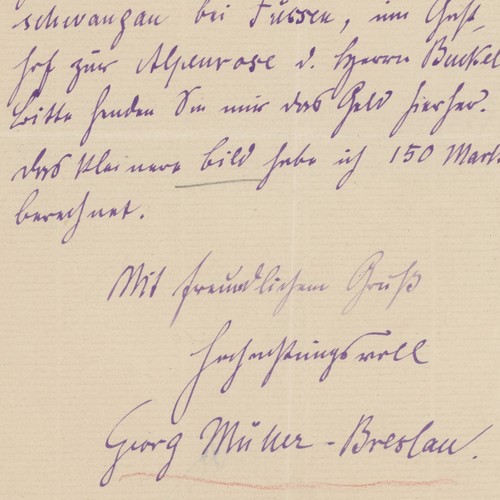 schwangau bei Füssen, im Gast-
hof zur Alpenrose d. Herrn Buckel
bitte senden Sie mir das Geld hierher.
das kleinere bild habe ich 150 Mark
berechnet.
Mit freundlichem Gruß
hochachtungsvoll
Georg Müller-Breslau.